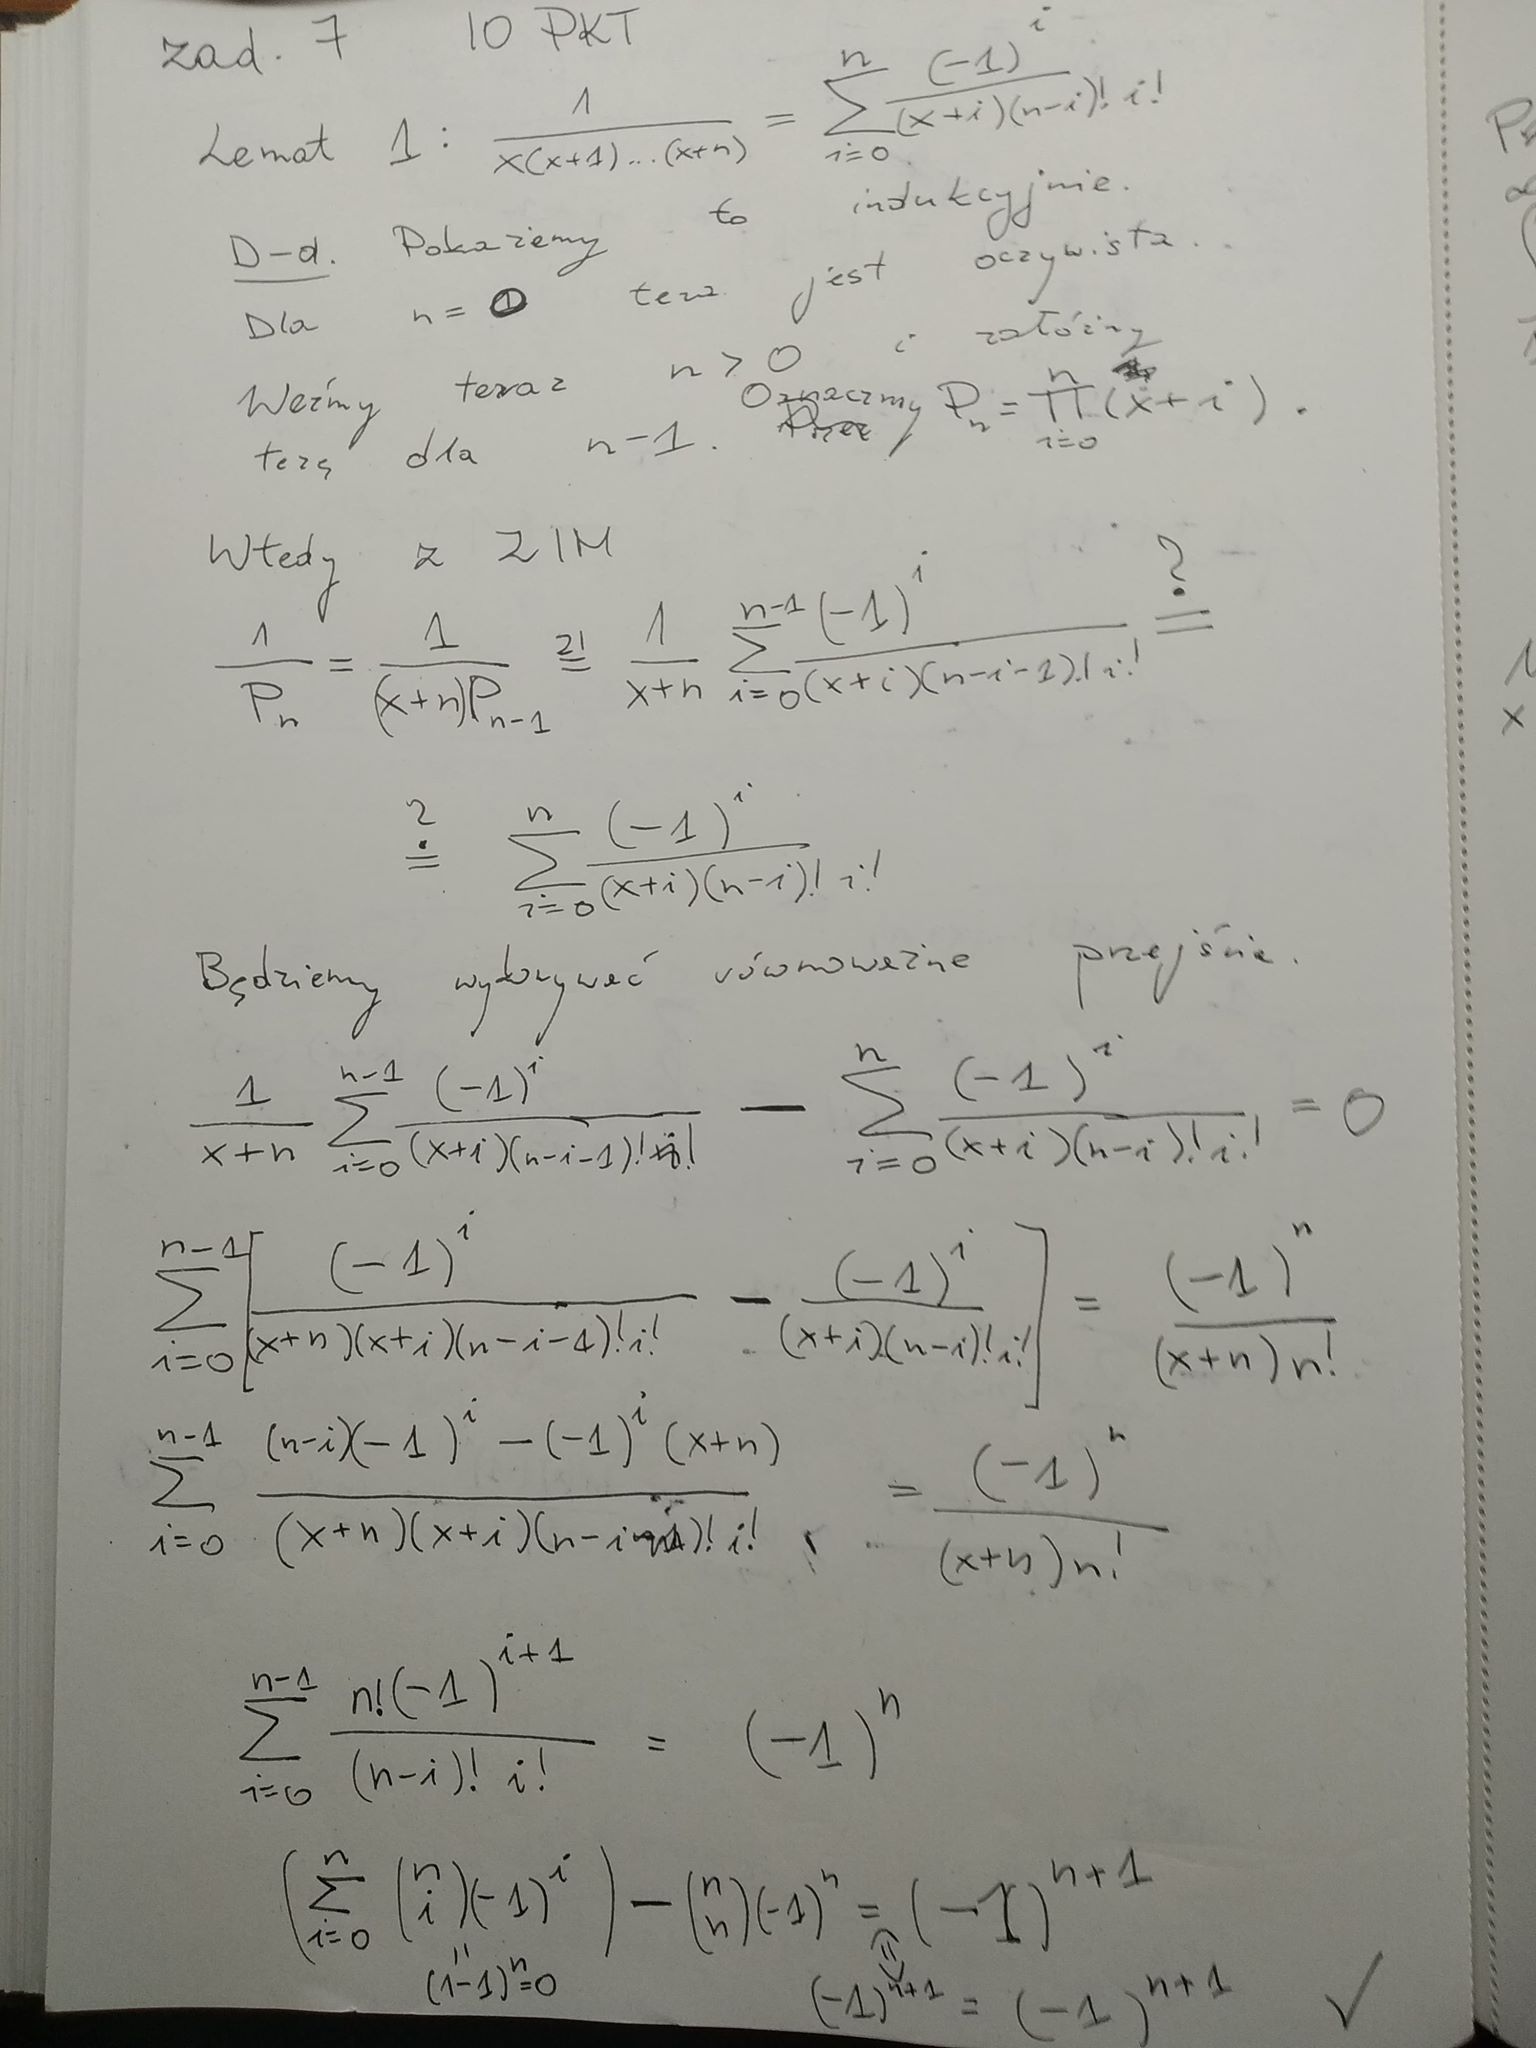 zad. 7 10 PKT
Lemat 1: 1/(x(x+1)...(x+n)) = ∑_{i=0}^{n} (-1)^i/((x+i)(n-i)! i!)
D-d. Pokażemy to indukcyjnie.
Dla n = 0 teza jest oczywista.
Weźmy teraz n > 0 i załóżmy
tezę dla n-1. Oznaczmy P_n = ∏_{i=0}^{n} (x+i).
Wtedy z ZIM
1/P_n = 1/((x+n)P_{n-1}) = 1/(x+n) ∑_{i=0}^{n-1} (-1)^i/((x+i)(n-i-1)! i!) =?
=? ∑_{i=0}^{n} (-1)^i/((x+i)(n-i)! i!)
Będziemy wykonywać równoważne przejścia.
1/(x+n) ∑_{i=0}^{n-1} (-1)^i/((x+i)(n-i-1)! i!) - ∑_{i=0}^{n} (-1)^i/((x+i)(n-i)! i!) = 0
∑_{i=0}^{n-1} [(-1)^i/((x+n)(x+i)(n-i-1)! i!) - (-1)^i/((x+i)(n-i)! i!)] = (-1)^n/((x+n) n!)
∑_{i=0}^{n-1} ((n-i)(-1)^i - (-1)^i (x+n))/((x+n)(x+i)(n-i)! i!) = (-1)^n/((x+n) n!)
∑_{i=0}^{n-1} n!(-1)^{i+1}/((n-i)! i!) = (-1)^n
(∑_{i=0}^{n} (n i)(-1)^i) - (n n)(-1)^n = (-1)^{n+1}
(1-1)^n = 0 (-1)^{n+1} = (-1)^{n+1} ✓